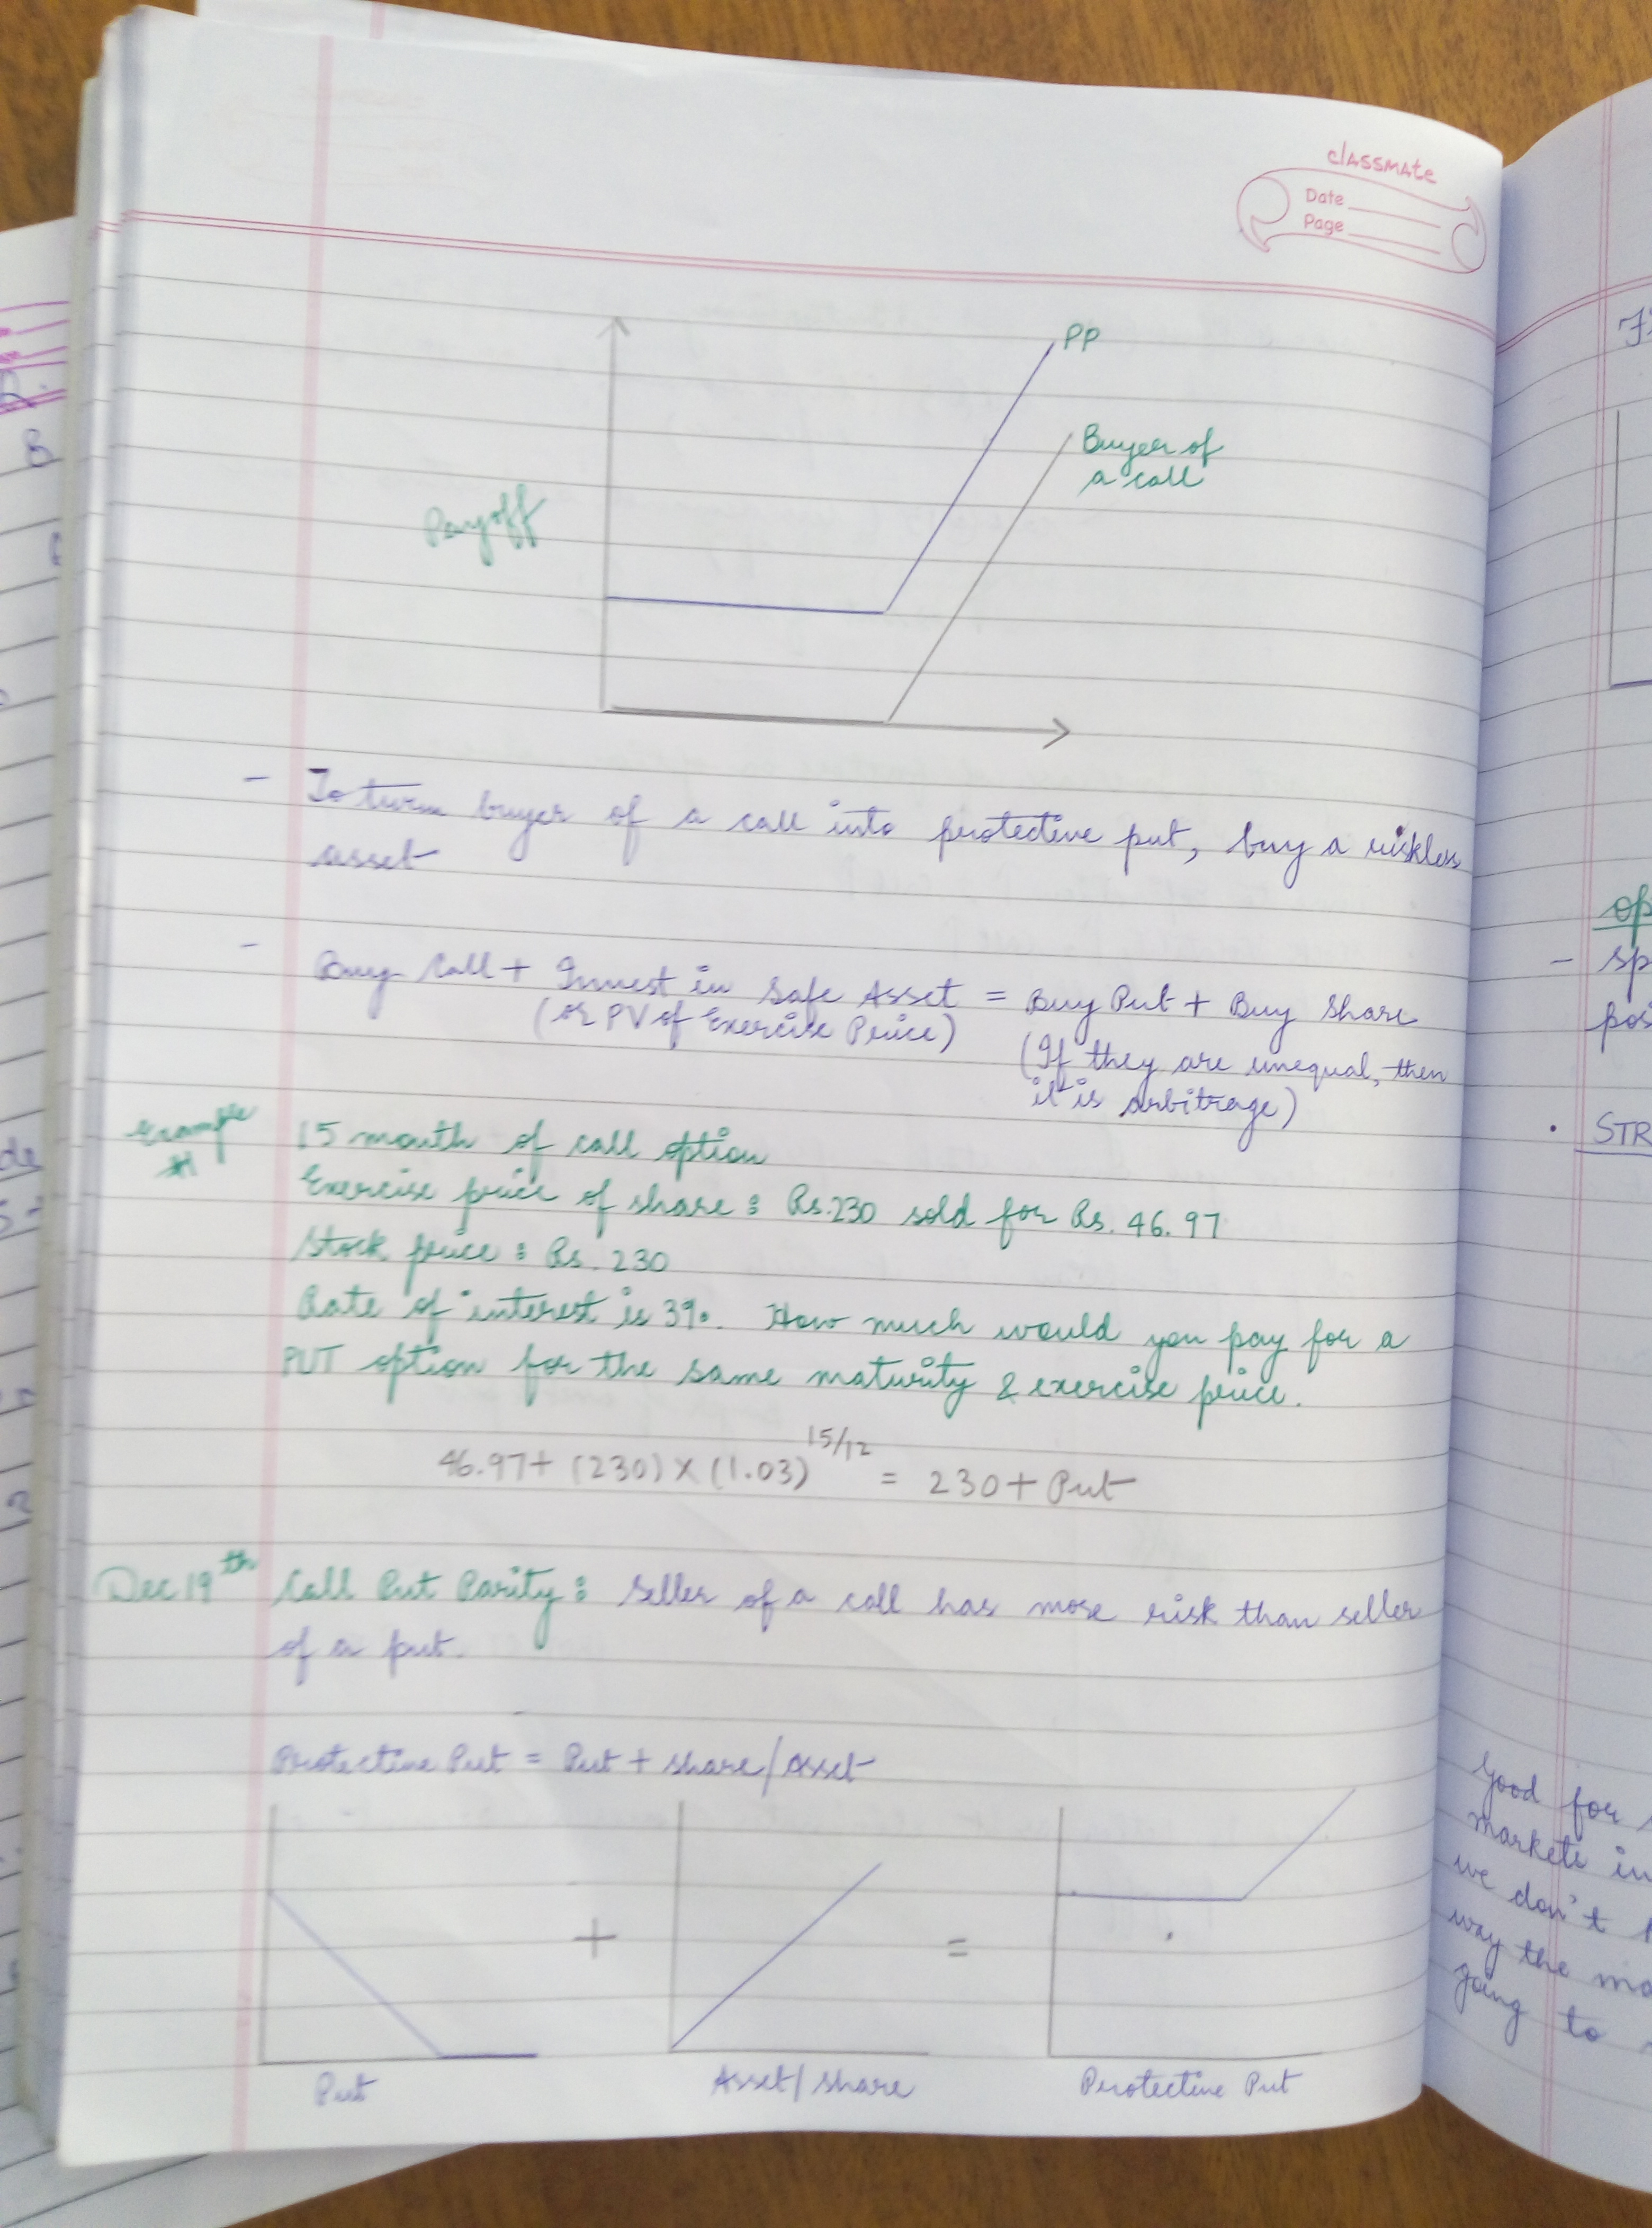 classmate
Date
Page
PP
Buyer of
a call
Payoff
- To turn buyer of a call into protective put, buy a riskless
asset
- Buy Call + Invest in Safe Asset = Buy Put + Buy Share
(or PV of Exercise Price)
(If they are unequal, then
it is arbitrage)
Example
#1
15 month of call option
Exercise price of share : Rs.230 sold for Rs. 46.97
Stock price : Rs. 230
Rate of interest is 3%. How much would you pay for a
PUT option for the same maturity & exercise price.
46.97 + (230) × (1.03)^15/12 = 230 + Put
Dec 19th Call Put Parity : Seller of a call has more risk than seller
of a put.
Protective Put = Put + share/Asset
+
=
Put
Asset/share
Protective Put
- sp
pos
• STR
Good for
markets in
we don't
way the mo
going to